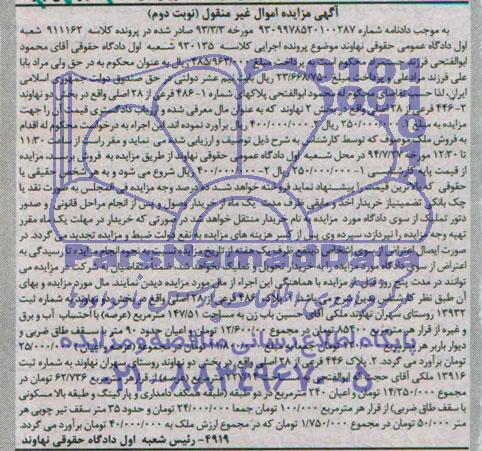 آگهی مزایده اموال غیر منقول (نوبت دوم)
به موجب دادنامه شماره ۹۳۰۹۹۷۸۵۲۰۱۰۰۲۸۷ مورخه ۹۳/۳/۳ صادر شده در پرونده کلاسه ۹۱۱۱۶۲ شعبه
اول دادگاه عمومی حقوقی نهاوند موضوع پرونده اجرایی کلاسه ۹۳۰۱۳۵ شعبه اول دادگاه حقوقی آقای محمود
ابوالفتحی فرزند محکوم است به پرداخت مبلغ ریال به عنوان محکوم به در حق ولی مراد بابا
علی فرزند مرادعلی و پرداخت مبلغ ۲۳/۶۶۸/۷۵۰ ریال بابت عشر دولتی در حق صندوق دولت جمهوری اسلامی
ایران، لذا حسب تقاضای محکوم له محمود ابوالفتحی پلاکهای شماره ۱- ۴۸۶ فرعی از ۲۸ اصلی واقع در بخش دو نهاوند
۲- ۴۴۶ فرعی از ۲۸ اصلی واقع در بخش ۲ نهاوند که به عنوان مال معرفی شده و ارزیابی دادگستری قیمت آن را جهت
مزایده به مبلغ ۱- ریال ۲- ۴۰۰/۰۰۰/۰۰۰ ریال برآورد نموده اند. این اجراء به درخواست محکوم له اقدام
به فروش ملک موصوف که توسط کارشناس به شرح ذیل توصیف و ارزیابی شده می نماید و مقرر است از ساعت ۱۱:۳۰
تا ۱۲:۳۰ مورخه در محل شعبه اول دادگاه عمومی حقوقی نهاوند از طریق مزایده به فروش برسد، مزایده
از قیمت پایه کارشناسی ۱- ۲۵۰/۰۰۰/۰۰۰ ریال ۲- ۴۰۰/۰۰۰/۰۰۰ ریال شروع می شود و به هر شخص حقیقی یا
حقوقی که بالاترین قیمت را پیشنهاد نماید فروخته خواهد شد. ده درصد وجه مزایده فی المجلس به صورت نقد یا
چک بانکی تضمینی از خریدار اخذ و مابقی ظرف مدت یک ماه از خریدار وصول و پس از انجام مراحل قانونی و صدور
دستور تملیک از سوی دادگاه مورد مزایده به نام خریدار منتقل خواهد شد. در صورتی که خریدار در مهلت یک ماه مقرر
تهیه وجه مزایده را نپردازد، سپرده وی پس از کسر هزینه های مزایده به نفع دولت ضبط و مزایده تجدید می گردد. در
صورت ایصال اعتراض از سوی اشخاص ذینفع ظرف یک هفته از تاریخ مزایده نسبت به نحوه انجام مزایده تا رسیدگی به
اعتراض از سوی دادگاه مورد مزایده را به خریدار تحویل و تملیک نخواهد شد. ضمناً متقاضیان به شرکت در مزایده می
توانند در مدت پنج روز قبل از مزایده با هماهنگی این اجراء از مال مورد مزایده دیدن نمایند. مال مورد مزایده و بهای
آن طبق نظر کارشناس بدین شرح می باشد: ۱. پلاک ۴۸۶ فرعی از ۲۸ اصلی واقع در بخش دو نهاوند به شماره ثبت
۱۳۹۳۲ روستای سهران نهاوند ملکی آقای حسین باب زن به مساحت ۱۴۷/۵۱ مترمربع (عرصه) با احتساب آب و برق
و غیره از قرار هر مترمربع تومان در مجموع ۱۲/۶۰۰/۰۰۰ تومان و اعیان حدود ۹۰ متر با سقف طاق ضربی و
دیوار باربر هر مترمربع تومان در مجموع تومان که در مجموع عرصه و اعیان ۲۵/۰۰۰/۰۰۰
تومان برآورد می گردد. ۲. پلاک ۴۴۶ فرعی از ۲۸ اصلی واقع در بخش دو نهاوند روستای سهران نهاوند به شماره ثبت
۱۳۹۱۶ ملکی آقای ابوالفتحی به مساحت مترمربع (عرصه) از قرار هر مترمربع ۶۲/۷۳۶ تومان در
مجموع ۱۴/۲۵۰/۰۰۰ تومان و اعیان ۲۴۰ مترمربع در دو طبقه (طبقه همکف دامداری و پارکینگ و طبقه بالا مسکونی
با سقف طاق ضربی) از قرار هر مترمربع ۱۰۰/۰۰۰ تومان جمعا ۲۴/۰۰۰/۰۰۰ تومان و حدود ۳۵ متر سقف تیر چوبی هر
متر ۵۰/۰۰۰ تومان در مجموع ۱/۷۵۰/۰۰۰ تومان که در مجموع ارزش ملک به ۴۰/۰۰۰/۰۰۰ تومان برآورد می گردد.
۴۹۱۹- رئیس شعبه اول دادگاه حقوقی نهاوند
ParsNamadData
پایگاه اطلاع رسانی مناقصه و مزایده
۰۲۱-۸۸۳۴۹۶۷۰-۵